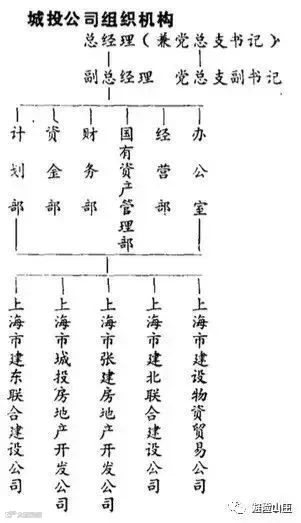 城投公司组织机构
总经理（兼党总支书记）
副总经理 党总支副书记
计划部
资金部
财务部
国有资产管理部
经营部
办公室
上海市建东联合建设公司
上海市城投房地产开发公司
上海市张建房地产开发公司
上海市建北联合建设公司
上海市建设物资贸易公司